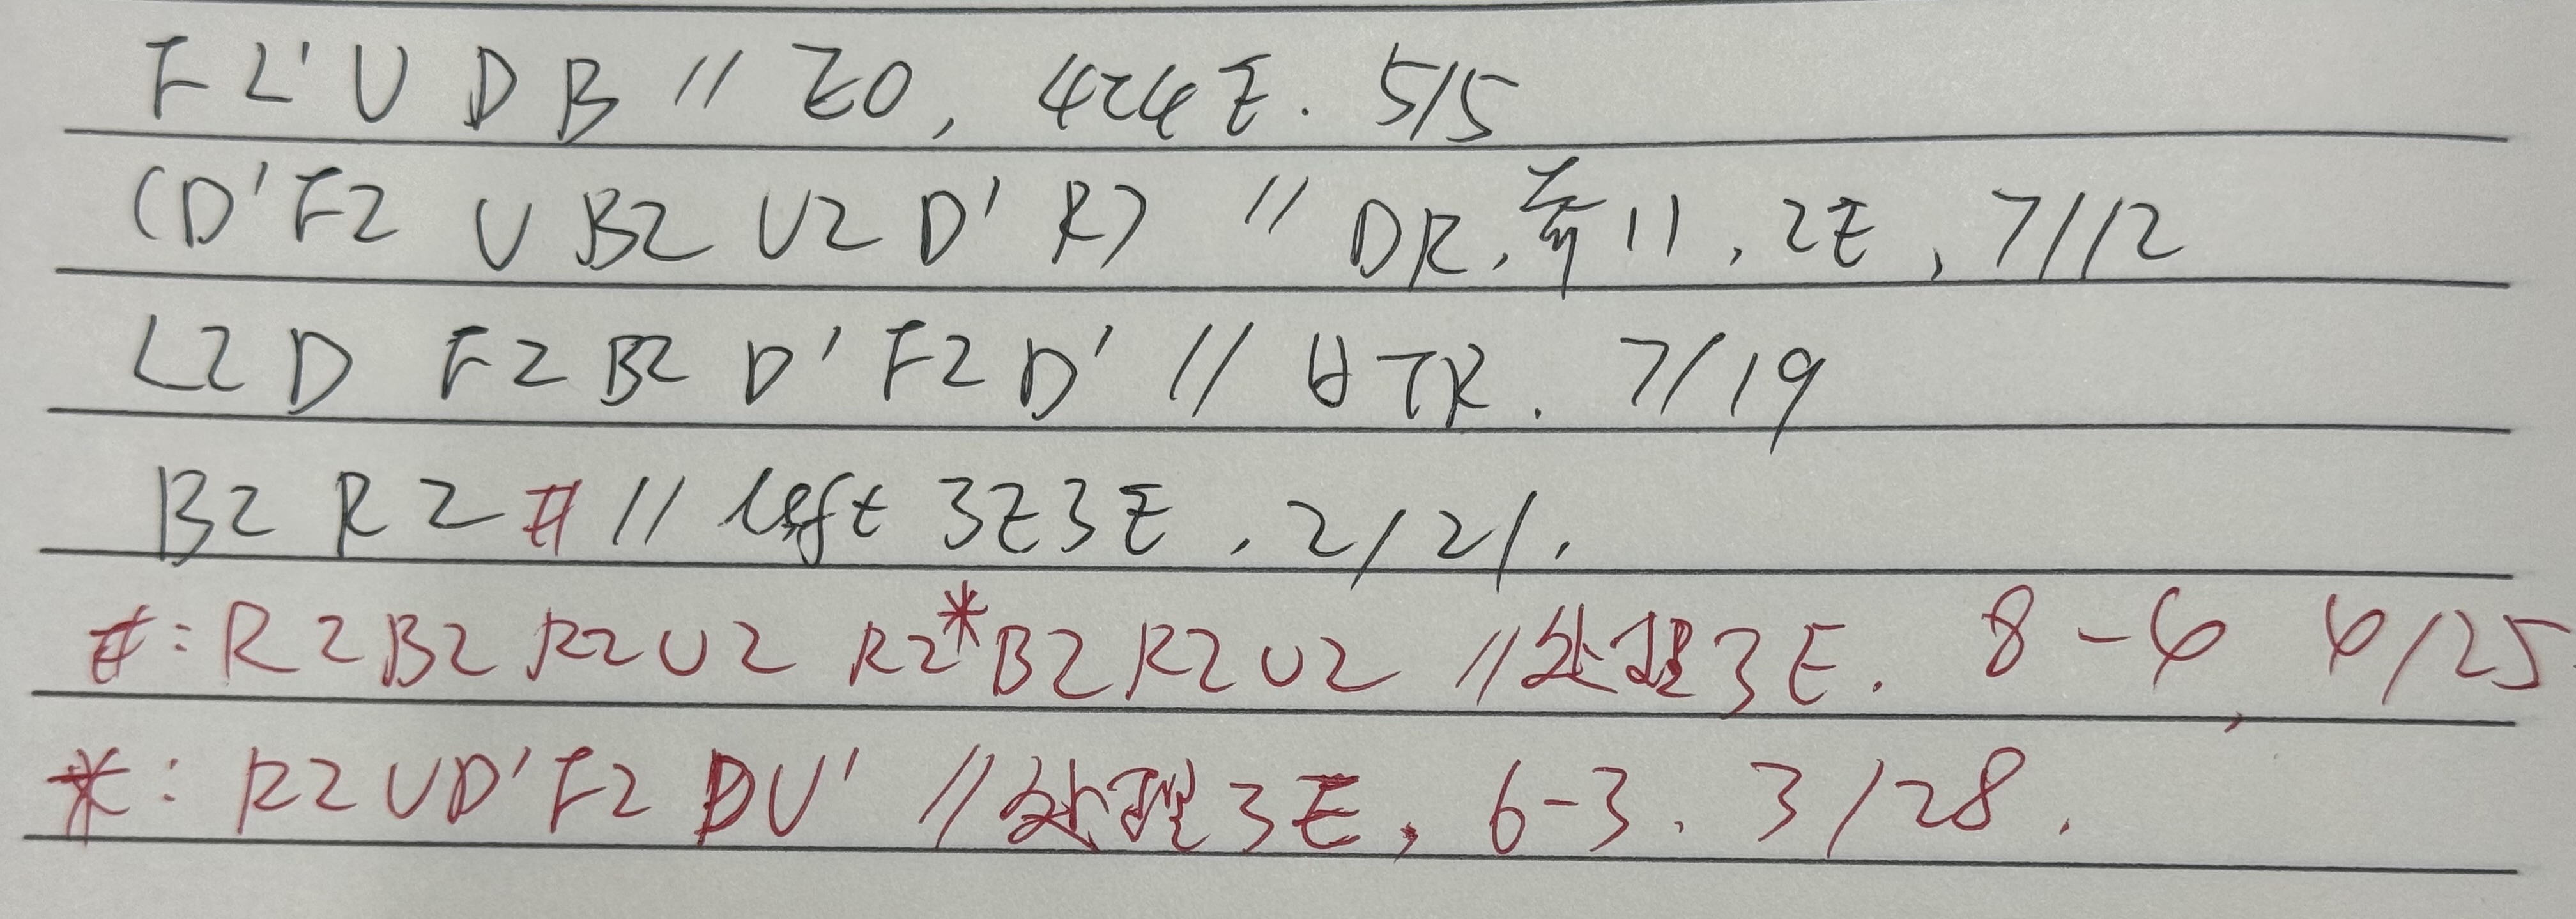 F L' U D B // EO, 4c4E. 5/5
(D' F2 U B2 U2 D' R) // DR, 奇11, 2E, 7/12
L2 D F2 B2 D' F2 D' // HTR. 7/19
B2 R2 # // left 3E3E, 2/21.
#: R2 B2 R2 U2 R2 * B2 R2 U2 // 处理3E. 8-4, 4/25
*: R2 U D' F2 D U' // 处理3E, 6-3. 3/28.